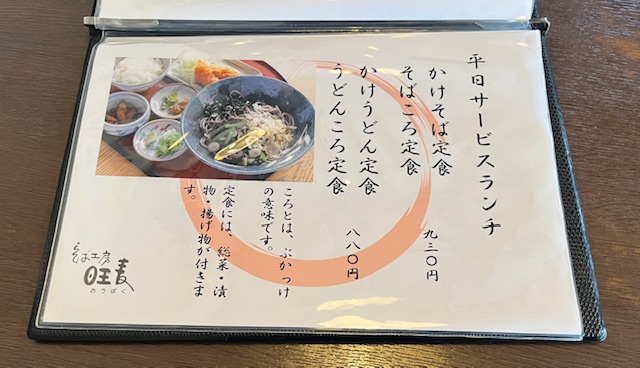 平日サービスランチ
かけそば定食
そばころ定食 九三〇円
かけうどん定食
うどんころ定食 八八〇円
ころとは、ぶかっけ
の意味です。
定食には、総菜・漬
物・揚げ物が付きま
す。
そば工房
旺麦
おうばく